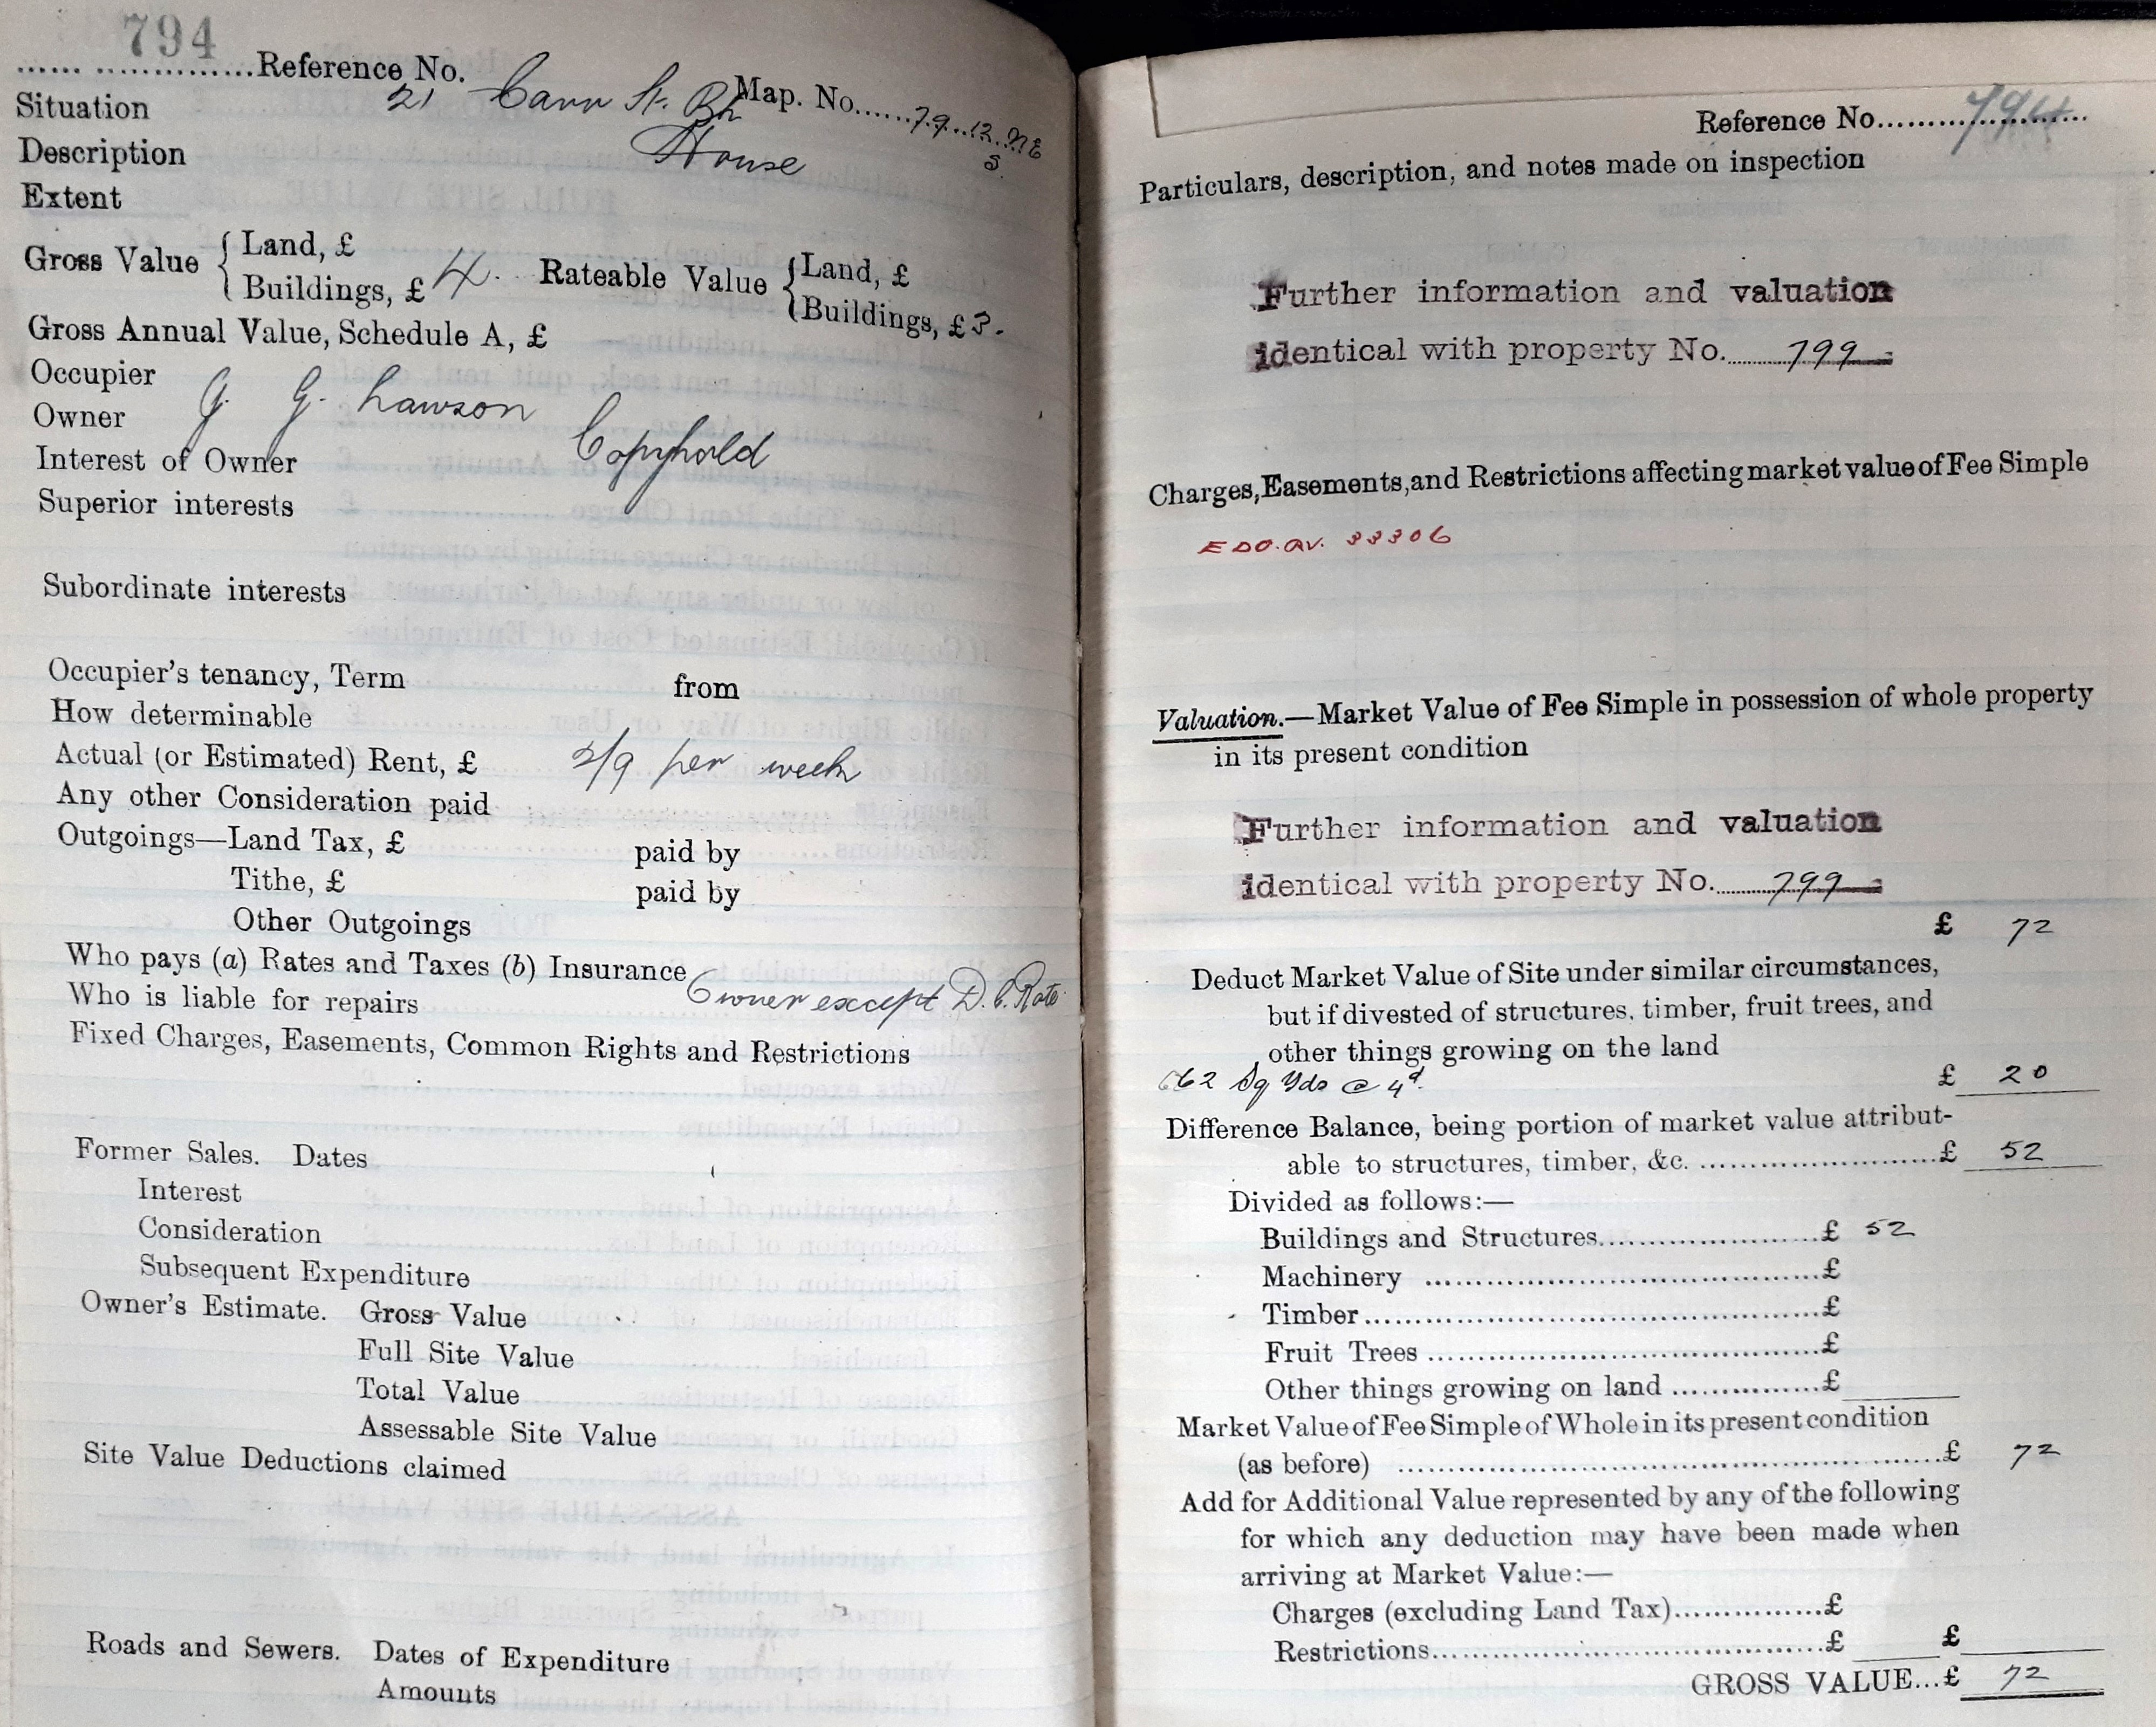 794
Reference No.
Map. No. 79.12.NE
S.
Situation 21 Carr St. Bh
Description House
Extent
Gross Value { Land, £
Buildings, £ 4.
Rateable Value { Land, £
Buildings, £ 3.
Gross Annual Value, Schedule A, £
Occupier
Owner G. G. Lawson
Interest of Owner Copyhold
Superior interests
Subordinate interests
Occupier's tenancy, Term from
How determinable
Actual (or Estimated) Rent, £ 2/9 per week
Any other Consideration paid
Outgoings—Land Tax, £ paid by
Tithe, £ paid by
Other Outgoings
Who pays (a) Rates and Taxes (b) Insurance
Who is liable for repairs Owner except D. C. Rate
Fixed Charges, Easements, Common Rights and Restrictions
Former Sales. Dates
Interest
Consideration
Subsequent Expenditure
Owner's Estimate. Gross Value
Full Site Value
Total Value
Assessable Site Value
Site Value Deductions claimed
Roads and Sewers. Dates of Expenditure
Amounts
Reference No. 794
Particulars, description, and notes made on inspection
Further information and valuation
identical with property No. 799
Charges, Easements, and Restrictions affecting market value of Fee Simple
33306
Valuation.—Market Value of Fee Simple in possession of whole property
in its present condition
Further information and valuation
identical with property No. 799
£ 72
Deduct Market Value of Site under similar circumstances,
but if divested of structures, timber, fruit trees, and
other things growing on the land
Sq Yds @ 4d. £ 20
Difference Balance, being portion of market value attribut-
able to structures, timber, &c. £ 52
Divided as follows:—
Buildings and Structures £ 52
Machinery £
Timber £
Fruit Trees £
Other things growing on land £
Market Value of Fee Simple of Whole in its present condition
(as before) £ 72
Add for Additional Value represented by any of the following
for which any deduction may have been made when
arriving at Market Value:—
Charges (excluding Land Tax) £
Restrictions £ £
GROSS VALUE...£ 72